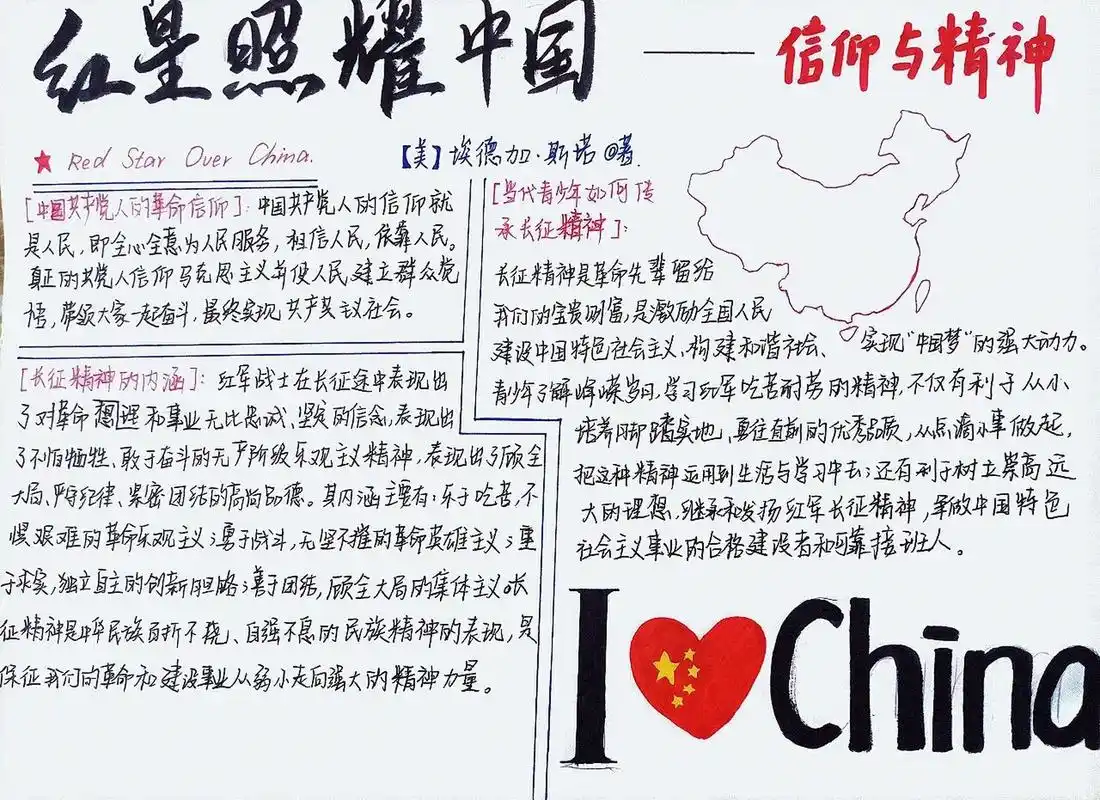 红星照耀中国 —— 信仰与精神
★ Red Star Over China.
【美】埃德加·斯诺◎著.
[中国共产党人的革命信仰]：中国共产党人的信仰就
是人民，即全心全意为人民服务，相信人民，依靠人民。
真正的共党人信仰马克思主义并使人民建立群众觉
悟，带领大家一起奋斗，最终实现共产其主议社会。
[长征精神的内涵]：红军战士在长征途中表现出
了对革命理想和事业无比忠诚、坚定的信念，表现出
了不怕牺牲、敢于奋斗的无产阶级乐观主义精神，表现出了顾全
大局、严守纪律、紧密团结的高尚品德。其内涵主要有：乐于吃苦，不
惧艰难的革命乐观主义；勇于战斗，无坚不摧的革命英雄主义；重
于求实，独立自主的创新胆路；善于团结，顾全大局的集体主义。长
征精神是中华民族百折不挠、自强不息的民族精神的表现，是
保证我们的革命和建设事业从弱小走向强大的精神力量。
[当代青少年如何传
承长征精神]：
长征精神是革命先辈留给
我们的宝贵财富，是激励全国人民
建设中国特色社会主义、构建和谐社会、实现“中国梦”的强大动力。
青少年了解峥嵘岁月，学习红军吃苦耐劳的精神，不仅有利于从小
培养脚踏实地、勇往直前的优秀品质，从点滴小事做起，
把这种精神运用到生活与学习中去；还有利于树立崇高远
大的理想，继承和发扬红军长征精神，争做中国特色
社会主义事业的合格建设者和可靠接班人。
I China